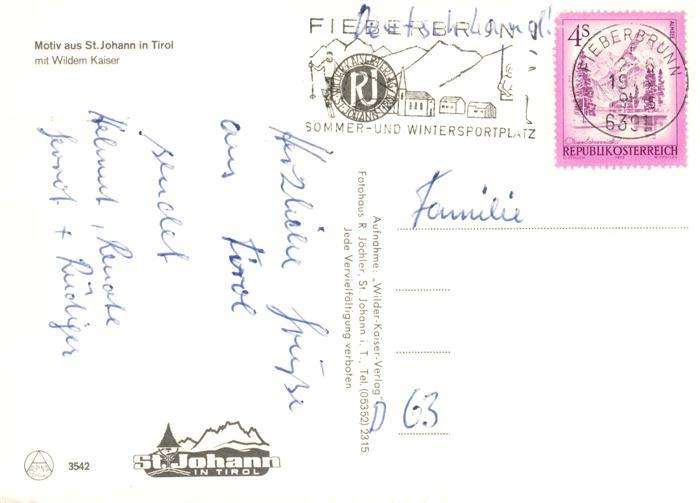 Motiv aus St. Johann in Tirol
mit Wildem Kaiser
Herzliche Grüße
aus Tirol
sendet
Helmut, Renate
+ Rüdiger
3542
St. Johann
IN TIROL
Aufnahme: „Wilder-Kaiser-Verlag"
Fotohaus R. Jöchler, St. Johann i. T., Tel. (05352) 2315
Jede Vervielfältigung verboten
Deutschland!
FIEBERBRUNN
RJ
SOMMER-UND WINTERSPORTPLATZ
4S
FIEBERBRUNN
6391
REPUBLIK ÖSTERREICH
Familie
D 63